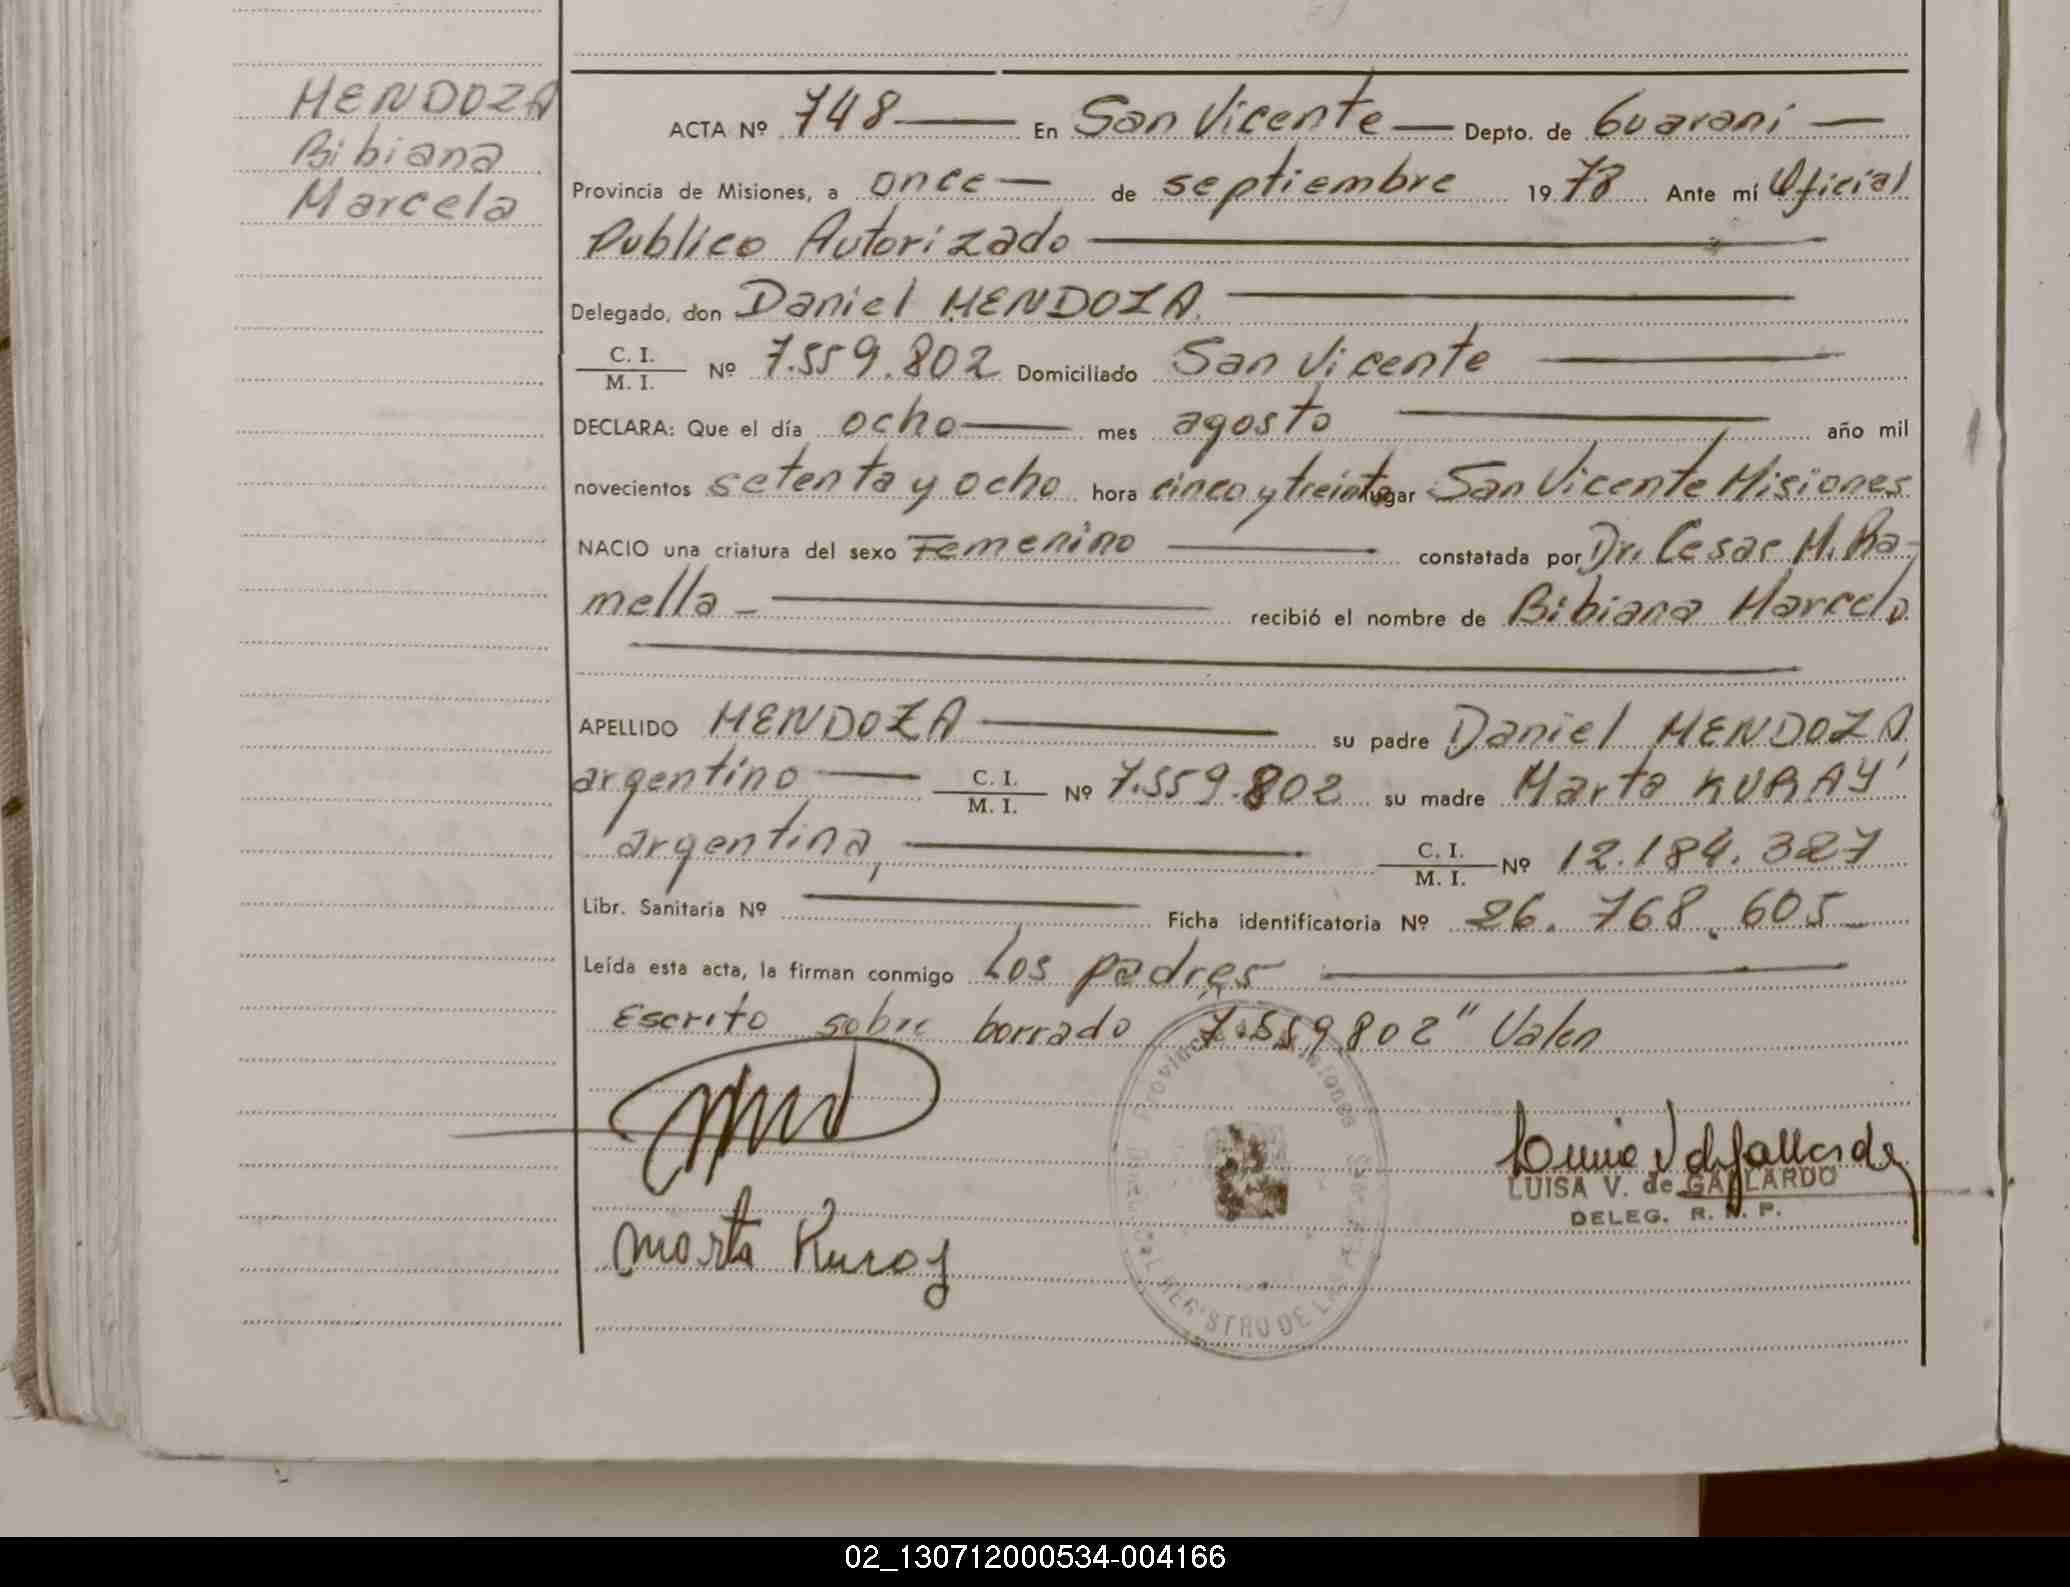 MENDOZA
Bibiana
Marcela
ACTA Nº 748 En San Vicente Depto. de Guaraní
Provincia de Misiones, a once de septiembre 1978 Ante mí Oficial
Publico Autorizado
Delegado, don Daniel MENDOZA
C. I. / M. I. Nº 7.559.802 Domiciliado San Vicente
DECLARA: Que el día ocho mes agosto año mil
novecientos setenta y ocho hora cinco y treinta lugar San Vicente Misiones
NACIO una criatura del sexo Femenino constatada por Dr. Cesar M. Ra-
mella recibió el nombre de Bibiana Marcela
APELLIDO MENDOZA su padre Daniel MENDOZA
argentino C. I. / M. I. Nº 7.559.802 su madre Marta KURAY
argentina, C. I. / M. I. Nº 12.184.327
Libr. Sanitaria Nº Ficha identificatoria Nº 26.768.605
Leída esta acta, la firman conmigo Los padres
Escrito sobre borrado 7.559.802" Valen
Marta Kuray
LUISA V. de GALLARDO
DELEG. R. P.
02_130712000534-004166